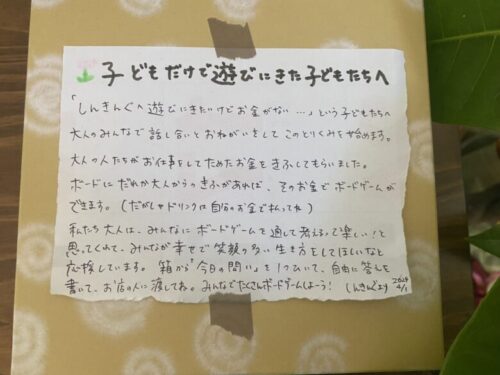 子どもだけで遊びにきた子どもたちへ
「しんきんぐへ遊びにきたいけどお金がない…」という子どもたちへ
大人のみんなで話し合いとおねがいをして このとりくみを始めます。
大人の人たちがお仕事をしてためたお金をきふしてもらいました。
ボードにだれか大人からのきふがあれば、そのお金でボードゲームが
できます。(だがしやドリンクは自分のお金で払ってね)
私たち大人は、みんなにボードゲームを通して考えるって楽しい!と
思ってくれて、みんなが幸せで笑顔の多い生き方をしてほしいなと
応援しています。箱から「今日の問い」を1つひいて、自由に答えを
書いて、お店の人に渡してね。みんなでたくさんボードゲームしよーう!
しんきんぐより
2024
4/1